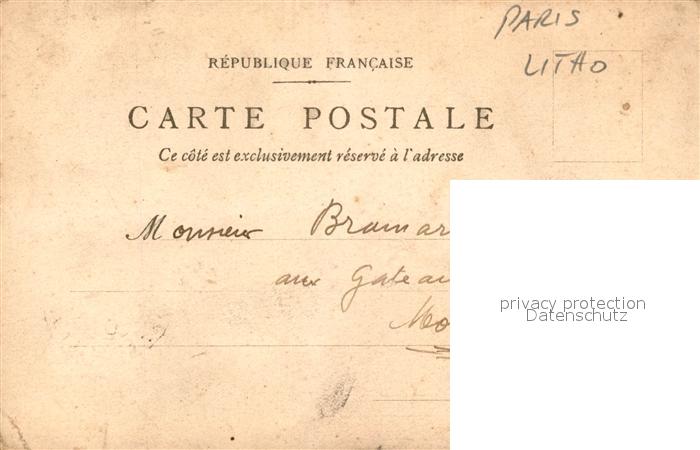 PARIS
LITHO
RÉPUBLIQUE FRANÇAISE
CARTE POSTALE
Ce côté est exclusivement réservé à l'adresse
Monsieur Bramar
aux Gateau
Mo
privacy protection
Datenschutz